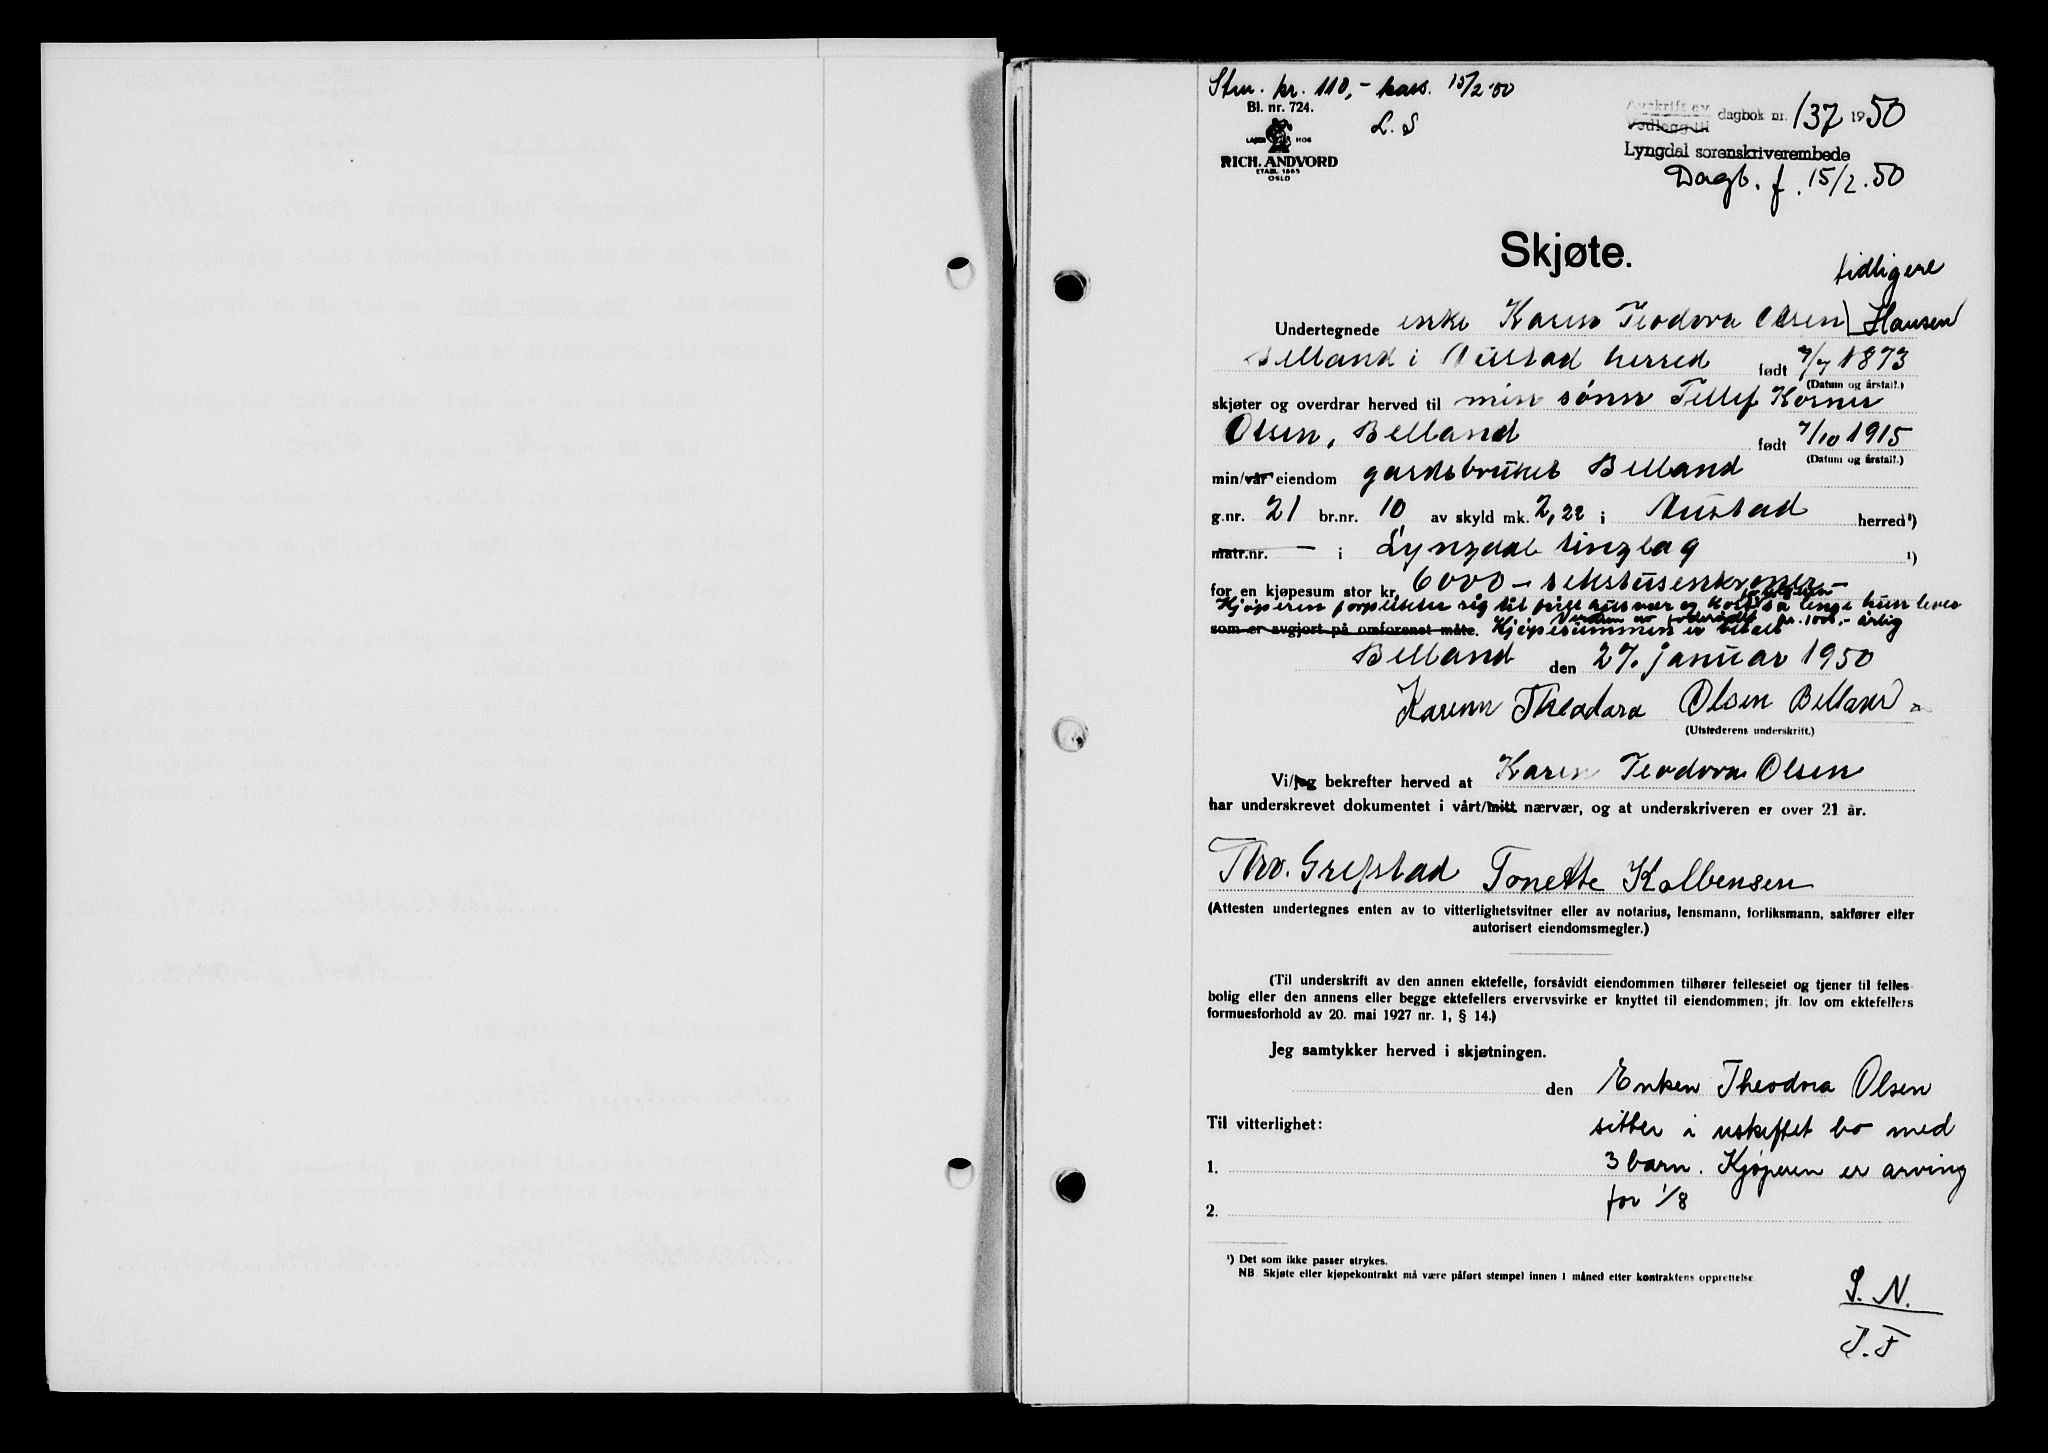 Stm. kr. 110,- kass. 15/2-50
L. S
Bl. nr. 724.
LAGER HOS
RICH. ANDVORD
ETABL. 1865
OSLO
Avskrift av
Vedlegg til dagbok nr. 137 1950
Lyngdal sorenskriverembede
Dagb. f. 15/2.50
Skjøte.
tidligere
Undertegnede enke Karen Teodora Olsen / Hansen
Belland i Austad herred født 7/7 1873
(Datum og årstall.)
skjøter og overdrar herved til min sønn Tellef Korner
Olsen, Belland født 7/10 1915
(Datum og årstall.)
min/vår eiendom gardsbruket Belland
g.nr. 21 br.nr. 10 av skyld mk. 2,22 i Austad herred¹)
matr.nr. — i Lyngdal tinglag ¹)
for en kjøpesum stor kr. 6000 - sekstusenkroner -
Kjøperen forplikter sig til fritt husvær og kost så lenge hun lever
Verdien av foderådet kr. 1000,- årlig
som er avgjort på omforenet måte. Kjøpesummen er betalt
Belland den 27. januar 1950
Karenn Theodora Olsen Belland
(Utstederens underskrift.)
Vi/jeg bekrefter herved at Karen Teodora Olsen
har underskrevet dokumentet i vårt/mitt nærvær, og at underskriveren er over 21 år.
Thv. Grefstad Tonette Kolbensen
(Attesten undertegnes enten av to vitterlighetsvitner eller av notarius, lensmann, forliksmann, sakfører eller
autorisert eiendomsmegler.)
(Til underskrift av den annen ektefelle, forsåvidt eiendommen tilhører felleseiet og tjener til felles
bolig eller den annens eller begge ektefellers ervervsvirke er knyttet til eiendommen; jfr. lov om ektefellers
formuesforhold av 20. mai 1927 nr. 1, § 14.)
Jeg samtykker herved i skjøtningen.
den Enken Theodora Olsen
Til vitterlighet: sitter i uskiftet bo med
1. 3 barn. Kjøperen er arving
2. for 1/8
¹) Det som ikke passer strykes.
NB. Skjøte eller kjøpekontrakt må være påført stempel innen 1 måned etter kontraktens opprettelse
S. N.
J. F